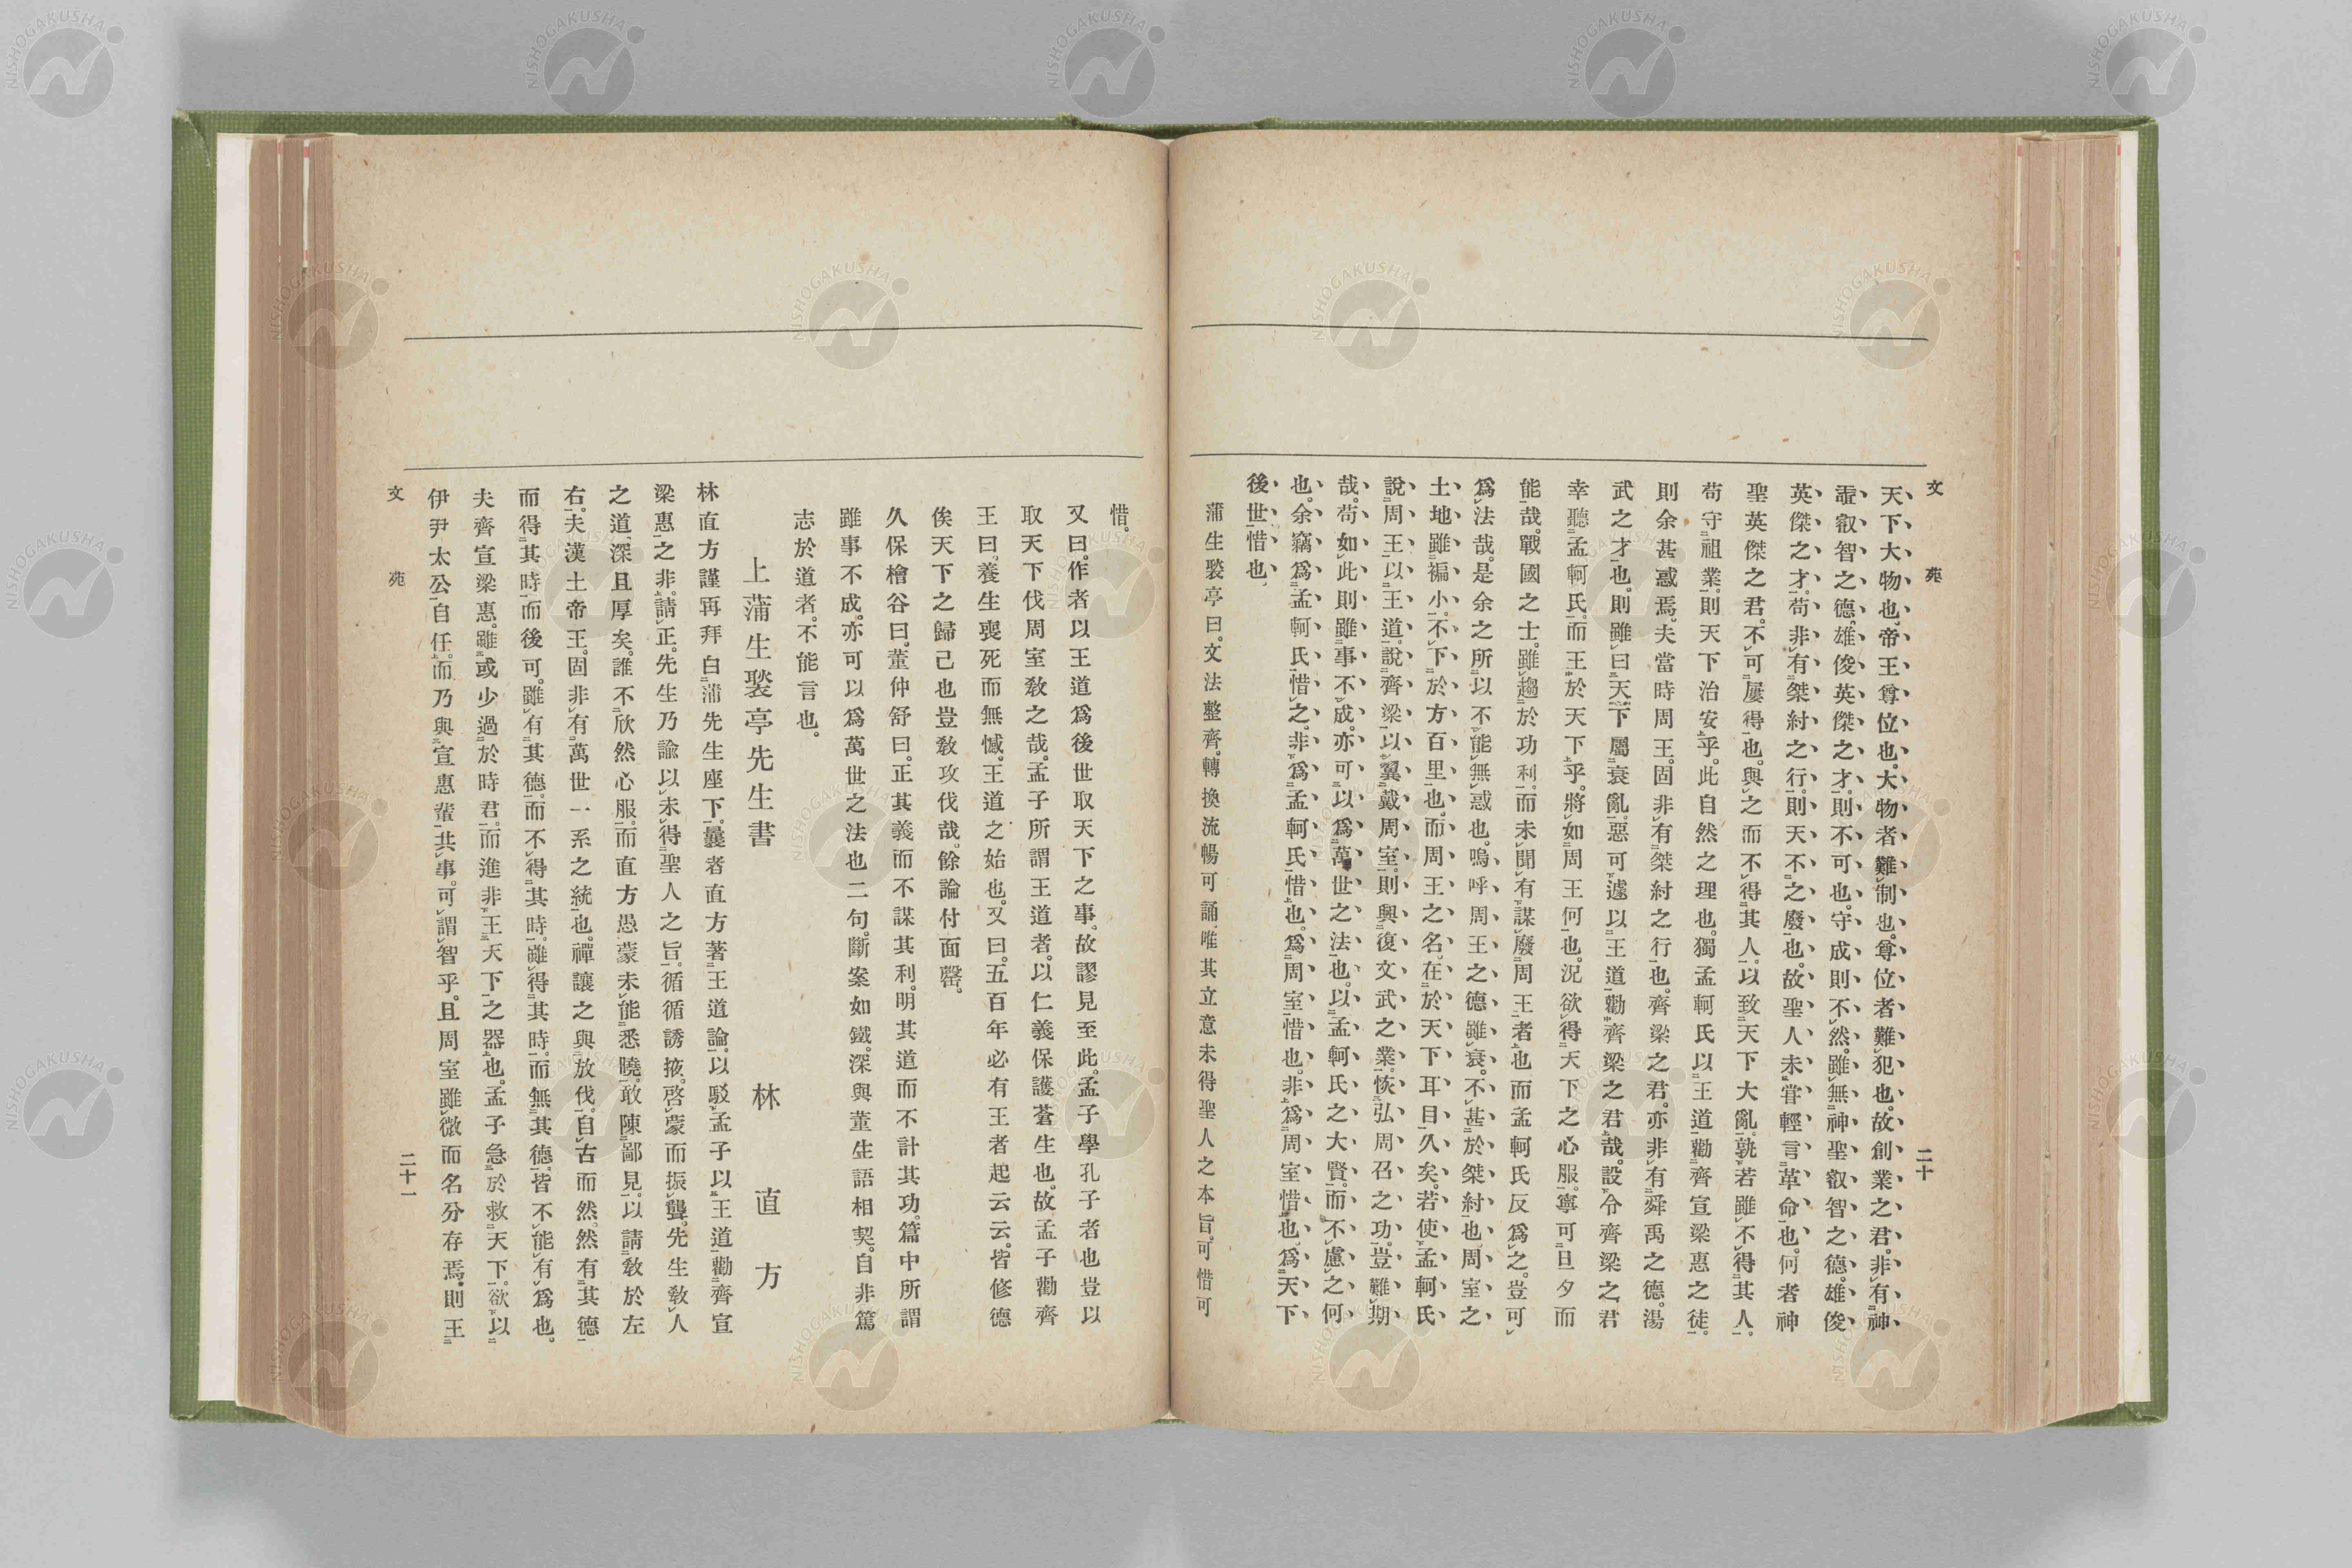 文苑
二十
天下大物也。帝王尊位也。大物者難制也。尊位者難犯也。故創業之君。非有神
靈叡智之德。雄俊英傑之才。則不可也。守成則不然。雖無神聖叡智之德。雄俊
英傑之才。苟非有桀紂之行。則天不之廢也。故聖人未甞輕言革命也。何者神
聖英傑之君。不可屢得也。與之而不得其人。以致天下大亂。孰若雖不得其人。
苟守祖業。則天下治安乎。此自然之理也。獨孟軻氏以王道勸齊宣梁惠之徒。
則余甚惑焉。夫當時周王。固非有桀紂之行也。齊梁之君。亦非有舜禹之德。湯
武之才也。則雖曰天下屬衰亂。惡可遽以王道勸齊梁之君哉。設令齊梁之君
幸聽孟軻氏。而王於天下乎。將如周王何也。況欲得天下之心服。寧可旦夕而
能哉。戰國之士。雖趨於功利。而未聞有謀廢周王者也而孟軻氏反爲之。豈可
爲法哉。是余之所以不能無惑也。嗚呼周王之德雖衰。不甚於桀紂也周室之
土地雖褊小。不下於方百里也。而周王之名。在於天下耳目久矣。若使孟軻氏
說周王以王道。說齊梁以翼戴周室。則興復文武之業。恢弘周召之功。豈難期
哉。苟如此則雖事不成。亦可以爲萬世之法也。以孟軻氏之大賢。而不慮之何
也。余竊爲孟軻氏惜之。非爲孟軻氏惜也。爲周室惜也。非爲周室惜也。爲天下
後世惜也。
蒲生褧亭曰。文法整齊。轉換流暢可誦。唯其立意未得聖人之本旨。可惜可
惜。
又曰。作者以王道爲後世取天下之事。故謬見至此。孟子學孔子者也豈以
取天下伐周室敎之哉。孟子所謂王道者。以仁義保護蒼生也。故孟子勸齊
王曰。養生喪死而無憾。王道之始也。又曰。五百年必有王者起云云。皆修德
俟天下之歸己也豈敎攻伐哉。餘論付面罄。
久保檜谷曰。董仲舒曰。正其義而不謀其利。明其道而不計其功。篇中所謂
雖事不成。亦可以爲萬世之法也二句。斷案如鐵。深與董生語相契。自非篤
志於道者。不能言也。
上蒲生褧亭先生書
林直方
林直方謹再拜白蒲先生座下。曩者直方著王道論。以駁孟子以王道勸齊宣
梁惠之非。請正。先生乃諭以未得聖人之旨。循循誘掖。啓蒙而振聾。先生敎人
之道。深且厚矣。誰不欣然心服。而直方愚蒙未能悉曉。敢陳鄙見。以請敎於左
右。夫漢土帝王。固非有萬世一系之統也。禪讓之與放伐。自古而然。然有其德
而得其時。而後可。雖有其德。而不得其時。雖得其時。而無其德。皆不能有爲也。
夫齊宣梁惠。雖或少過於時君。而進非王天下之器也。孟子急於救天下。欲以
伊尹太公自任。而乃與宣惠輩共事。可謂智乎。且周室雖微而名分存焉。則王
文苑
二十一